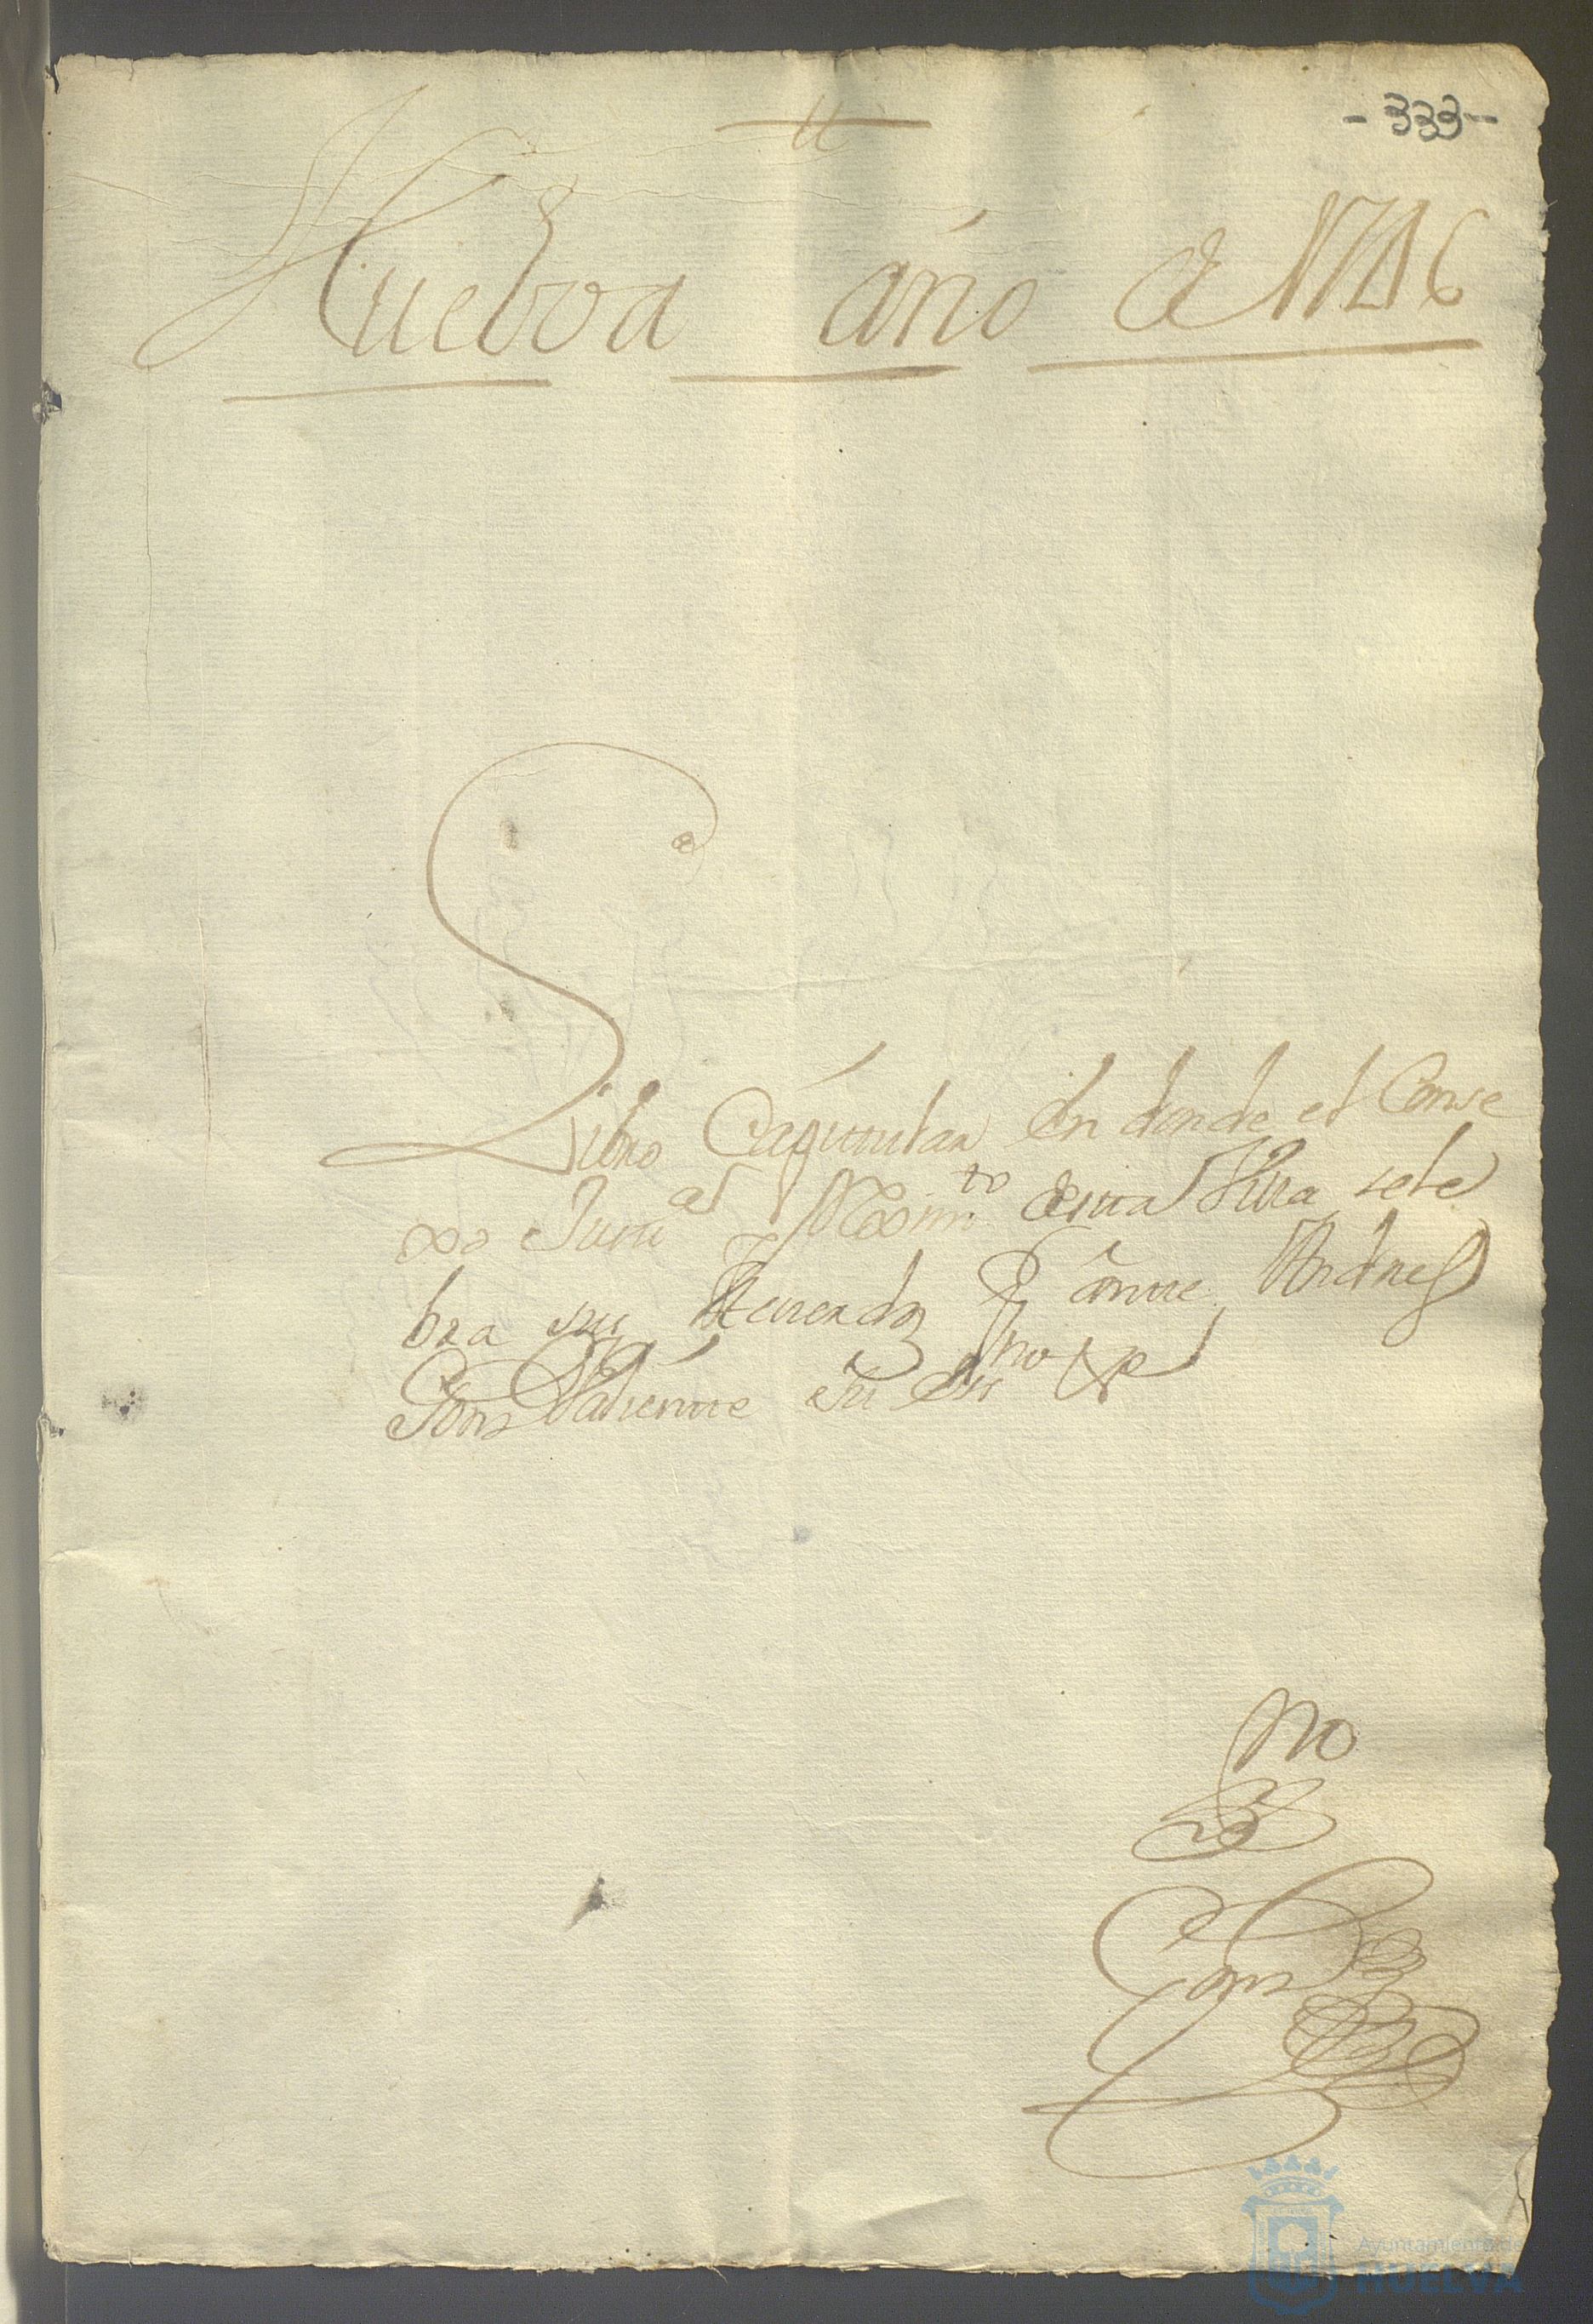 - 333 -
Huelva año de 1746
Libro Capitular En donde el Conse
xo Justª y Reximto desta Villa sele
bra sus Acuerdos Ante Andres
Gons Valiente su Essno ppl
no
Gons
Ayuntamiento de
HUELVA